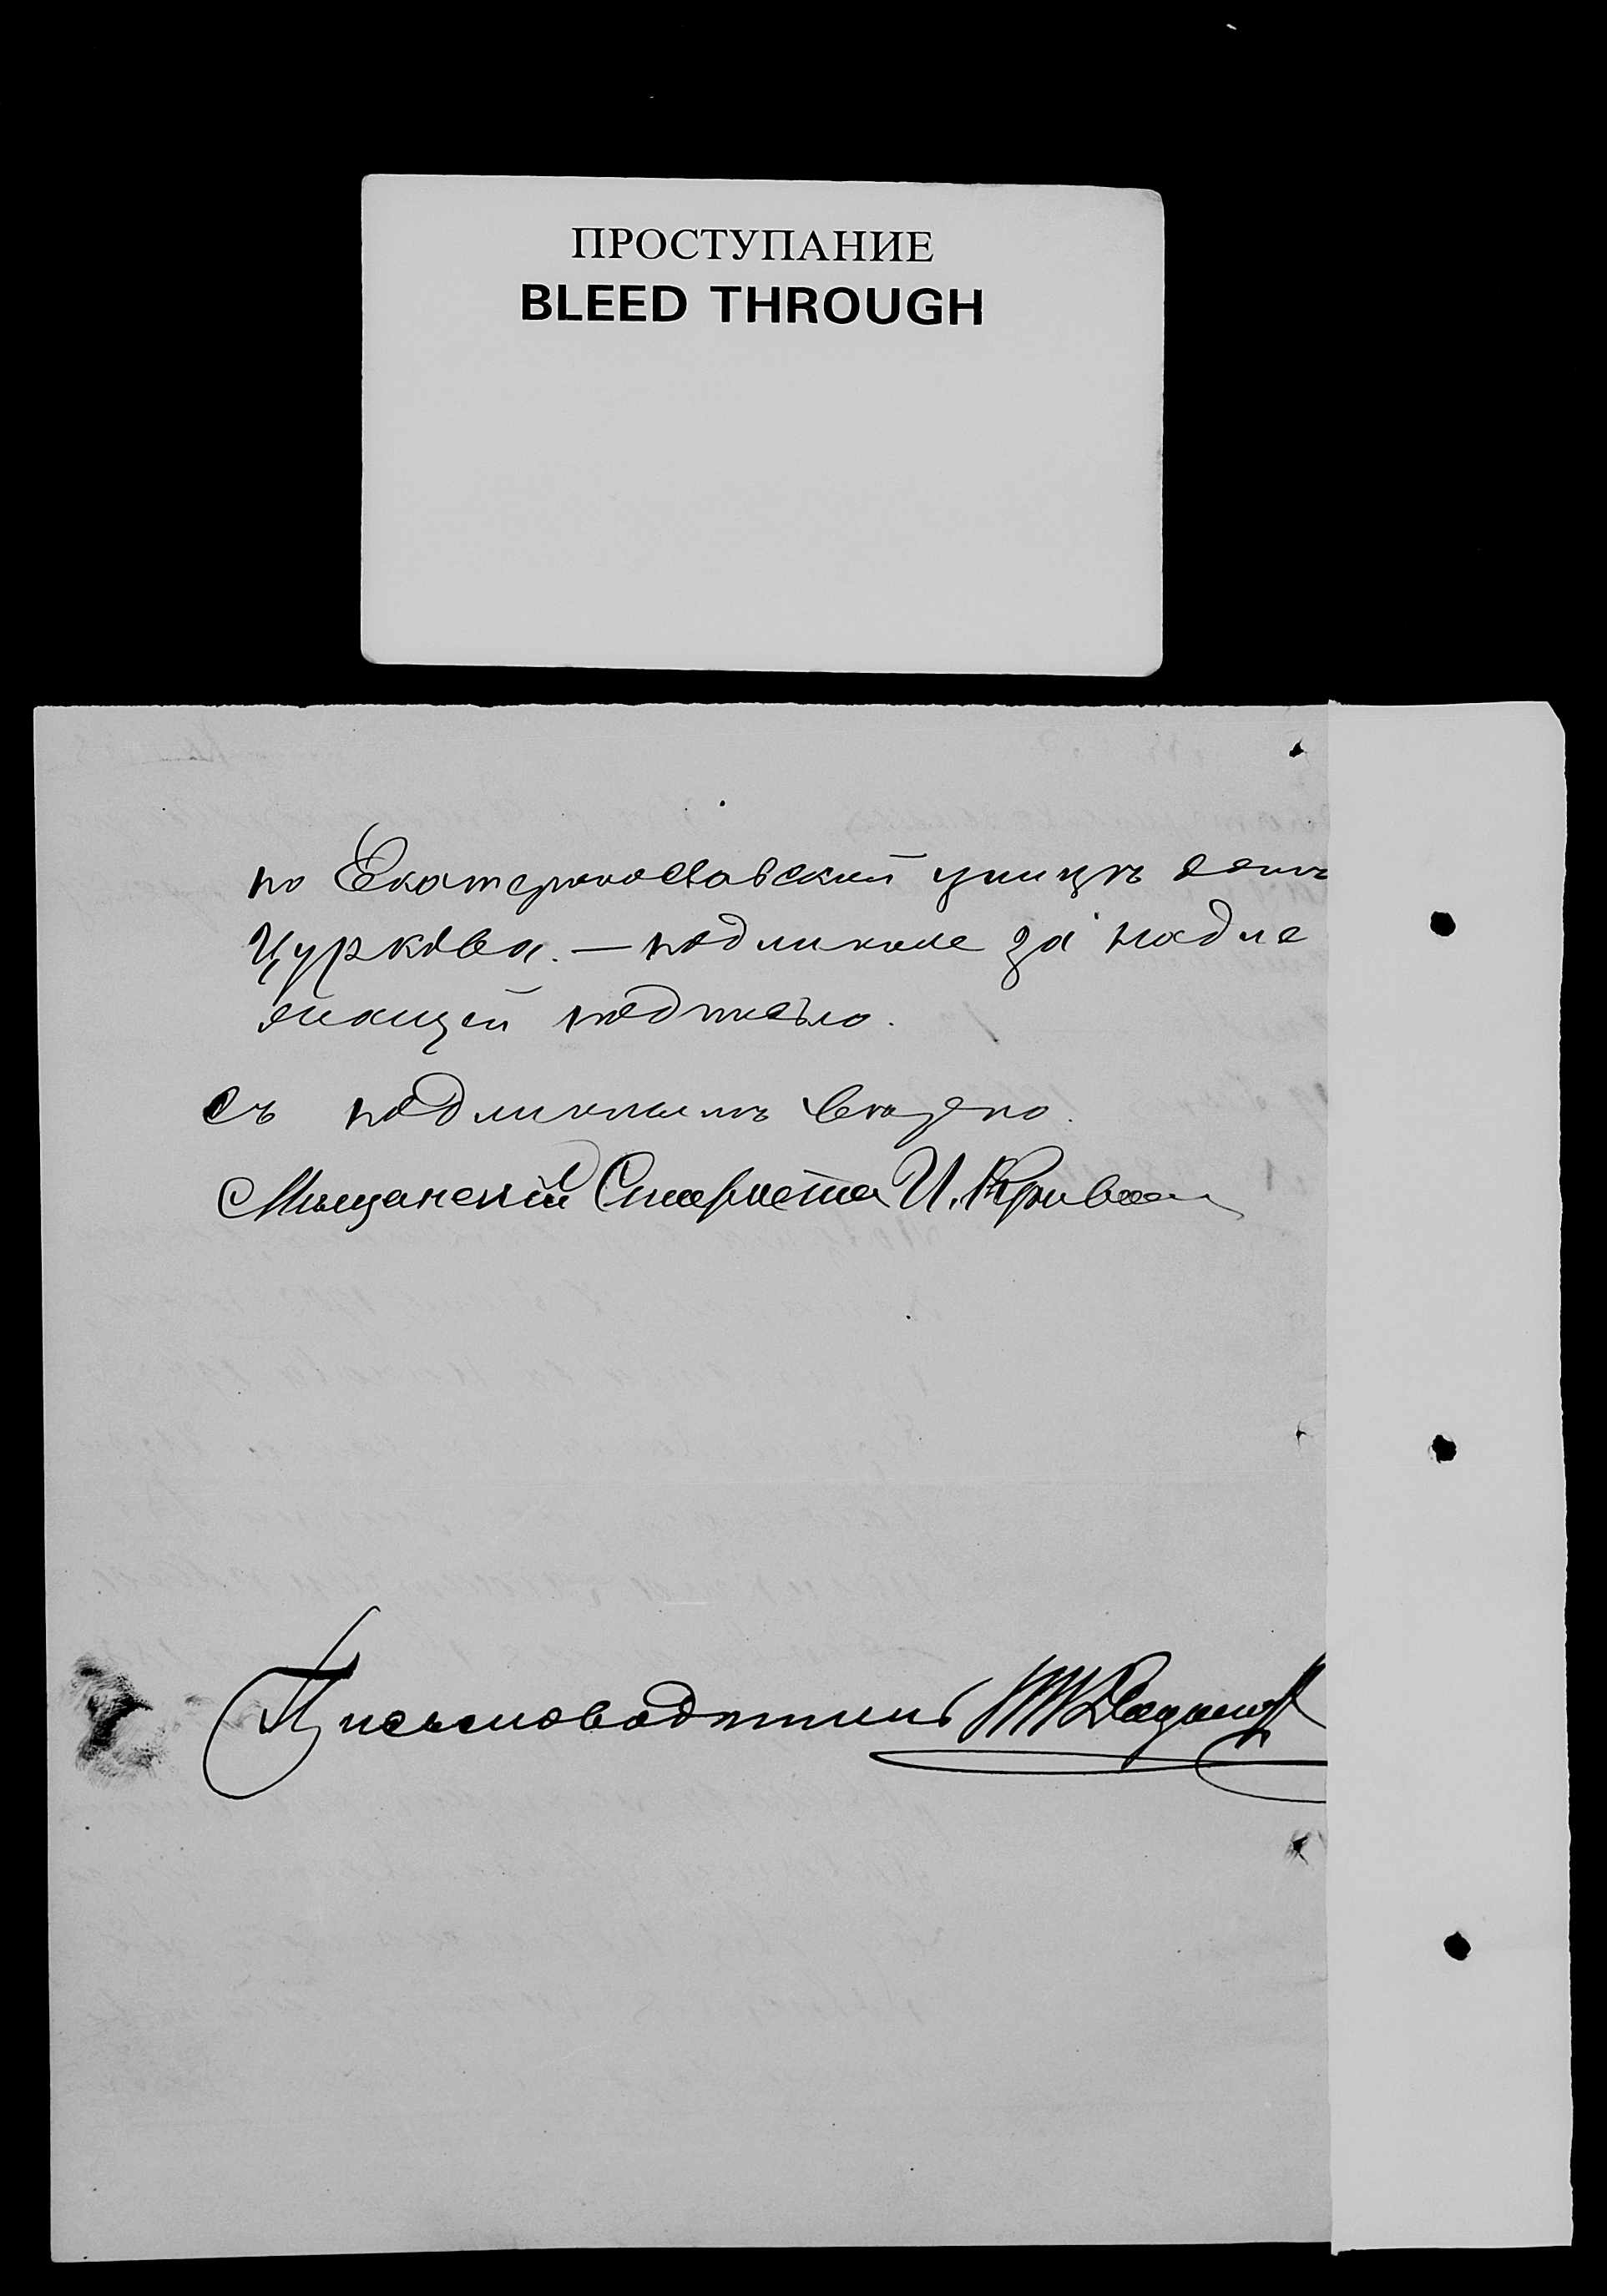 ПРОСТУПАНИЕ
BLEED THROUGH
по Екатеринославской улицѣ домъ
Цуркова. — подлинное за надле
жащей подписью.
Съ подлиннымъ вѣрно.
Мѣщанскій Староста И.
Письмоводитель